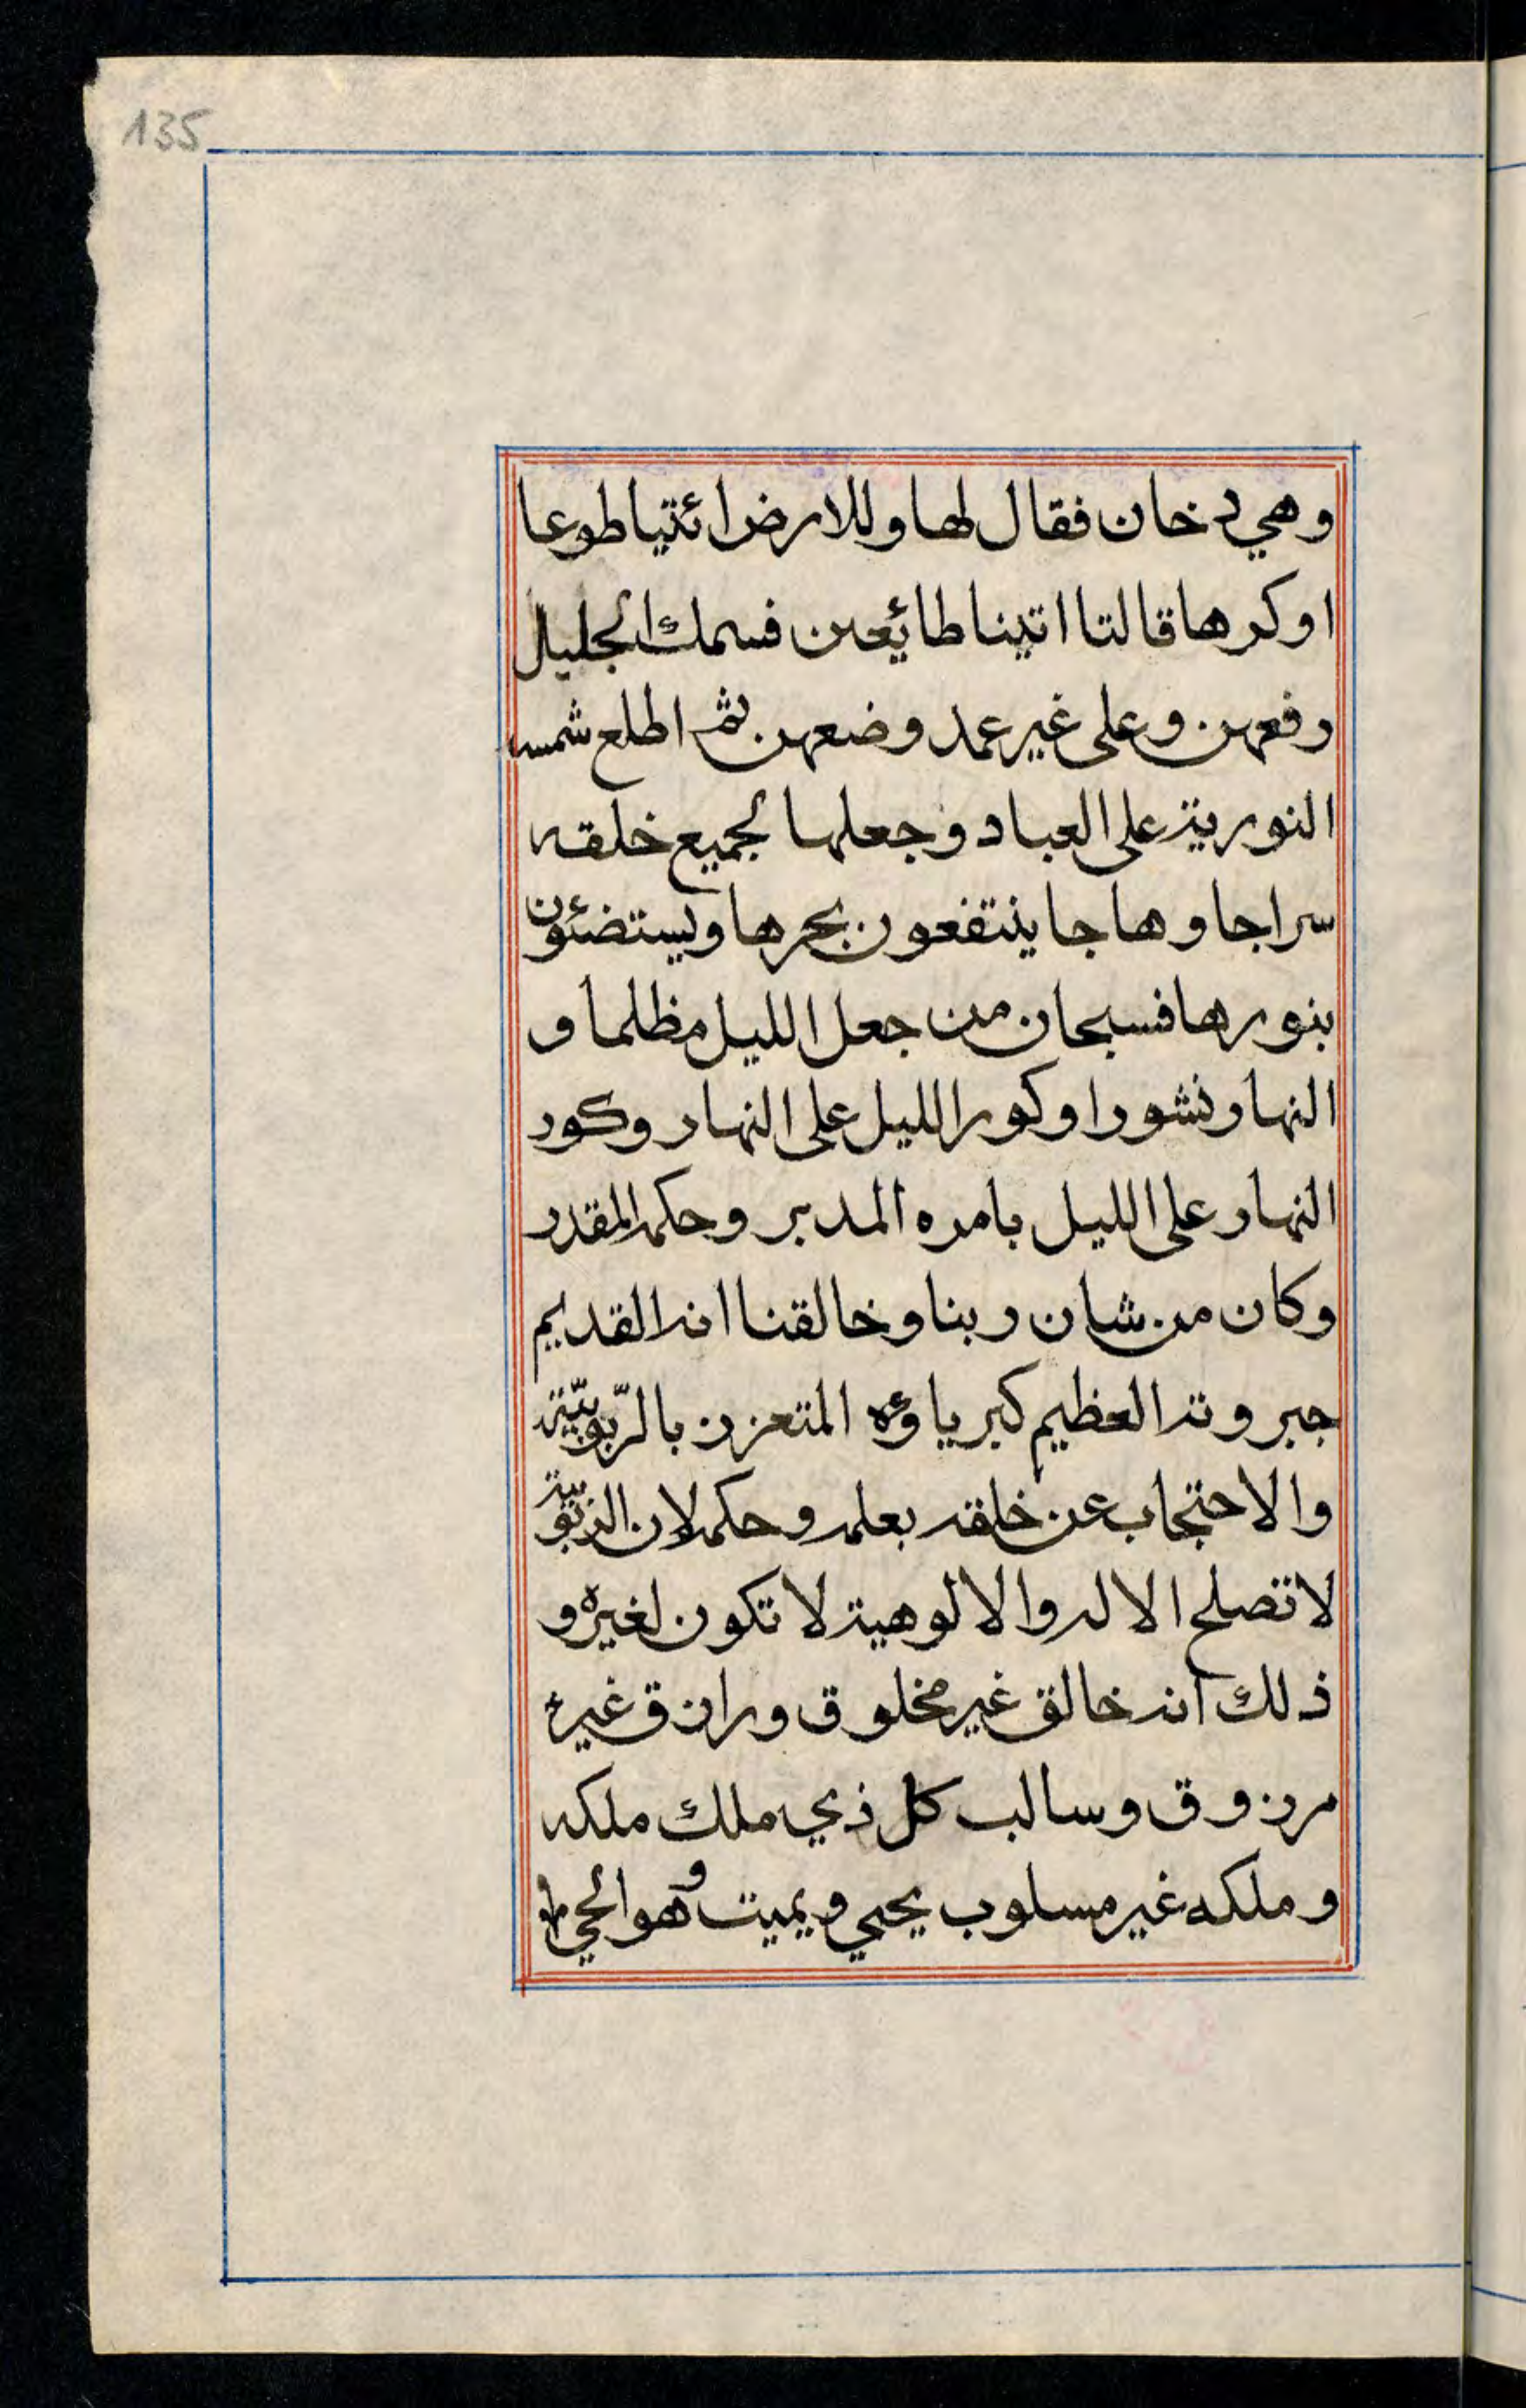 135
وهي دخان فقال لها وللارض ائتيا طوعا
او كرها قالتا اتينا طائعين فسمك الجليل
رفعهن وعلى غير عمد وضعهن ثم اطلع شمس
النورية على العباد وجعلها لجميع خلقه
سراجا وهاجا ينتفعون بحرها ويستضئون
بنورها فسبحان من جعل الليل مظلما و
النهار نشورا وكور الليل على النهار وكور
النهار على الليل بامره المدبر وحكمه المقدر
وكان من شان ربنا وخالقنا انه القديم
جبروته العظيم كبرياؤه المتعزز بالرّبوبيّة
والاحتجاب عن خلقه بعلمه وحكمه لان الربوبية
لا تصلح الا له والالوهية لا تكون لغيره و
ذلك انه خالق غير مخلوق ورازق غير
مرزوق وسالب كل ذي ملك ملكه
وملكه غير مسلوب يحيي ويميت وهو الحي